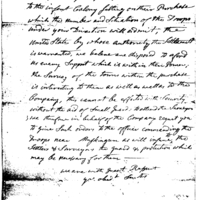 to the infant Colony settling on their Purchase
which the number and Situation of the Troops
under your Direction will admit; the
United States By whose authority the Settlement
is warranted, we believe are disposed to afford
us every Support which is within their Power,
the Survey of the Towns within the purchase
is interesting to them as well as to the
Company, this cannot be effected with Security,
without the aid of Small Guards
we therefore in behalf of the Company expect you
to Give Such orders to the officer commanding the
Troops near Muskingum as will comfort the
Settlers & Surveyors the guard & protection which
may be necessary for them
we are with great Respect